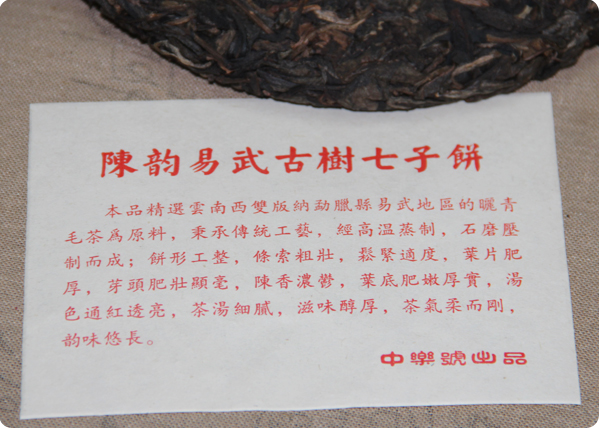 陳韵易武古樹七子餅
本品精選雲南西雙版納勐臘縣易武地區的曬青
毛茶爲原料，秉承傳统工藝，經高温蒸制，石磨壓
制而成；餅形工整，條索粗壯，鬆緊適度，葉片肥
厚，芽頭肥壯顯毫，陳香濃鬱，葉底肥嫩厚實，湯
色通紅透亮，茶湯細膩，滋味醇厚，茶氣柔而剛，
韵味悠長。
中樂號出品